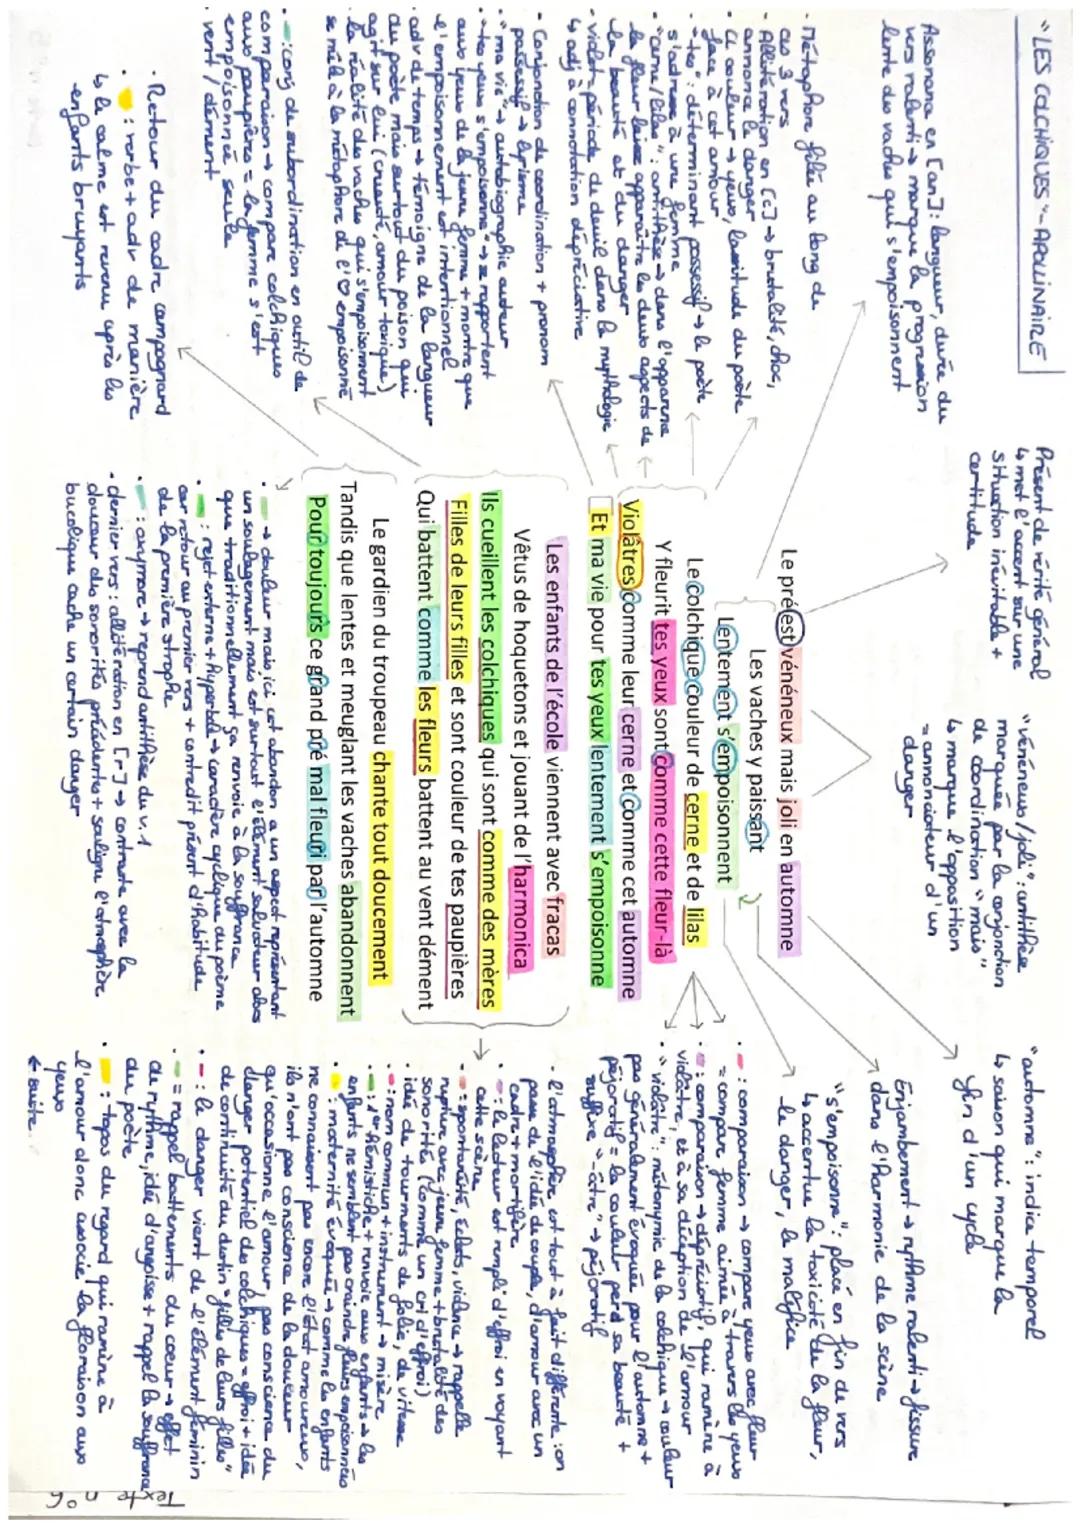 "LES COLCHIQUES" - APOLLINAIRE
Assonance en [an]: langueur, durée du
vers ralenti → marque la progression
lente des vaches qui s'empoisonnent
Présent de vérité général
↳ met l'accent sur une
situation inévitable +
certitude
"vénéneux/joli": antithèse
marquée par la conjonction
de coordination "mais"
↳ marque l'opposition
= annonciateur d'un
danger
"automne": indice temporel
↳ saison qui marque la
fin d'un cycle
Enjambement → rythme ralenti → fissure
dans l'Harmonie de la scène
"s'empoisonne": placé en fin de vers
↳ accentue la toxicité de la fleur,
le danger, le maléfice
• Métaphore filée au long de
ces 3 vers
• Allitération en [c] → brutalité, choc,
annonce le danger
• couleur → yeux, lassitude du poète
face à cet amour
• "tes": déterminant possessif → le poète
s'adresse à une femme
• "cerne/lilas": antithèse → dans l'apparence
la fleur laisse apparaître les deux aspects de
la beauté et du danger
• violet = période de deuil dans la mythologie
↳ adj à connotation dépréciative
• Conjonction de coordination + pronom
possessif → lyrisme
• "ma vie" → autobiographie auteur
• "tes yeux s'empoisonne" → se rapportent
aux yeux de la jeune femme + montre que
l'empoisonnement est intentionnel
• adv de temps → témoigne de la langueur
du poète mais surtout du poison qui
agit sur lui (cruauté, amour toxique)
• la réalité des vaches qui s'empoisonnent
se mêle à la métaphore de l'♡ empoisonné
• : conj de subordination en outil de
comparaison → compare colchiques
aux paupières = la femme s'est
empoisonnée seule
• vent / dément
• Retour du cadre campagnard
• : verbe + adv de manière
↳ le calme est revenu après les
enfants bruyants
Le pré est vénéneux mais joli en automne
Les vaches y paissant
Lentement s'empoisonnent
Le colchique couleur de cerne et de lilas
Y fleurit tes yeux sont comme cette fleur-là
Violâtres comme leur cerne et comme cet automne
Et ma vie pour tes yeux lentement s'empoisonne
Les enfants de l'école viennent avec fracas
Vêtus de hoquetons et jouant de l'harmonica
Ils cueillent les colchiques qui sont comme des mères
Filles de leurs filles et sont couleur de tes paupières
Qui battent comme les fleurs battent au vent dément
Le gardien du troupeau chante tout doucement
Tandis que lentes et meuglant les vaches abandonnent
Pour toujours ce grand pré mal fleuri par l'automne
• → douleur mais, ici cet abandon a un aspect représentant
un soulagement mais est surtout élément salvateur alors
que traditionnellement ça renvoie à la souffrance
• : rejet externe + hyperbole → caractère cyclique du poème
car retour au premier vers + contredit présent d'habitude
de la première strophe
• : oxymore → reprend antithèse du v.1
• dernier vers: allitération en [r] → contraste avec la
douceur des sonorités précédentes + souligne l'atmosphère
bucolique cache un certain danger
• : comparaison → compare yeux avec fleur
= compare femme aimée à travers les yeux
• : comparaison → dépréciatif, qui ramène à
violâtre, et à sa déception de l'amour
• "violâtre": métonymie de la colchique → couleur
pas généralement évoquée pour l'automne +
péjoratif = la couleur perd sa beauté +
suffixe "-âtre" → péjoratif
• l'atmosphère est tout à fait différente: on
passe de l'idée de couple, d'amour avec un
cadre + mortifère
• : le lecteur est rempli d'effroi en voyant
cette scène
• : spontanéité, éclats, violence → rappelle
rupture avec jeune femme + brutalité des
sonorités (comme un cri d'effroi)
• idée de tourments de folie, de vitesse
• : nom commun + instrument → misère
• : 1er hémistiche + renvoie aux enfants → les
enfants ne semblent pas craindre fleurs empoisonnées
• : maternité évoquée → comme les enfants
ne connaissent pas encore l'état amoureux,
ils n'ont pas conscience de la douleur
qu'occasionne l'amour, pas conscience du
danger potentiel des colchiques = effroi + idée
de continuité du destin "filles de leurs filles"
• : le danger vient de l'élément féminin
• = rappel battements du coeur → effet
de rythme, idée d'angoisse + rappel la souffrance
du poète
• : topos du regard qui ramène à
l'amour donc associe la floraison aux
yeux
← suite..
Texte n°6